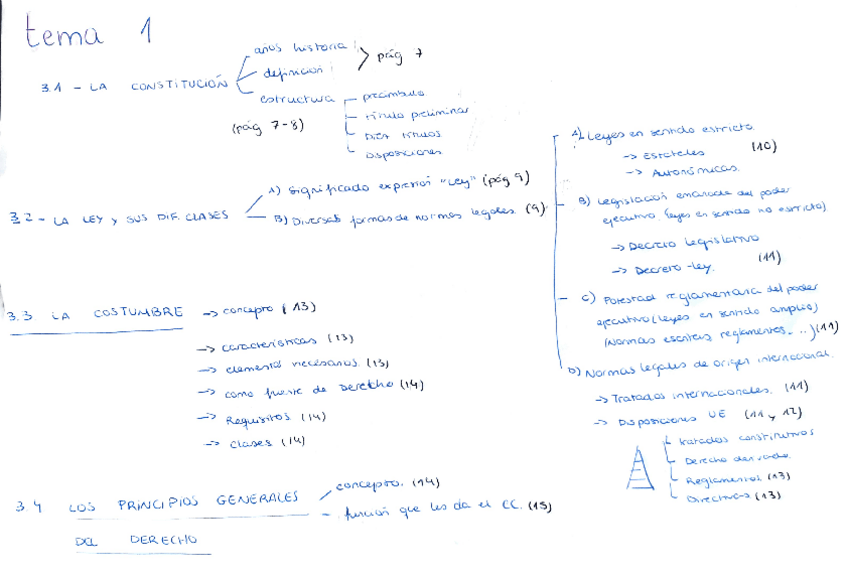 tema 1
3.1 - LA CONSTITUCIÓN
años historia
definición
pág 7
estructura
(pág 7-8)
preámbulo
título preliminar
DIEZ títulos
Disposiciones
3.2 - LA LEY Y SUS DIF. CLASES
A) Significado expresión "Ley" (pág 9)
B) Diversas formas de normas legales. (9)
A) Leyes en sentido estricto
→ Estatales
(10)
→ Autonómicas.
B) Legislación emanada del poder
ejecutivo. (leyes en sentido no estricto)
→ Decreto Legislativo
→ Decreto-ley.
(11)
C) Potestad reglamentaria del poder
ejecutivo (leyes en sentido amplio)
(Normas escritas, reglamentos...) (11)
D) Normas legales de origen internacional.
→ Tratados internacionales. (11)
→ Disposiciones UE (11 y 12)
tratados constitutivos
Derecho derivado.
Reglamentos (13)
Directivas (13)
3.3 LA COSTUMBRE → concepto (13)
→ características (13)
→ elementos necesarios. (13)
→ como fuente de Derecho (14)
→ Requisitos (14)
→ clases (14)
3.4 LOS PRINCIPIOS GENERALES
DEL DERECHO
concepto. (14)
función que les da el CC. (15)